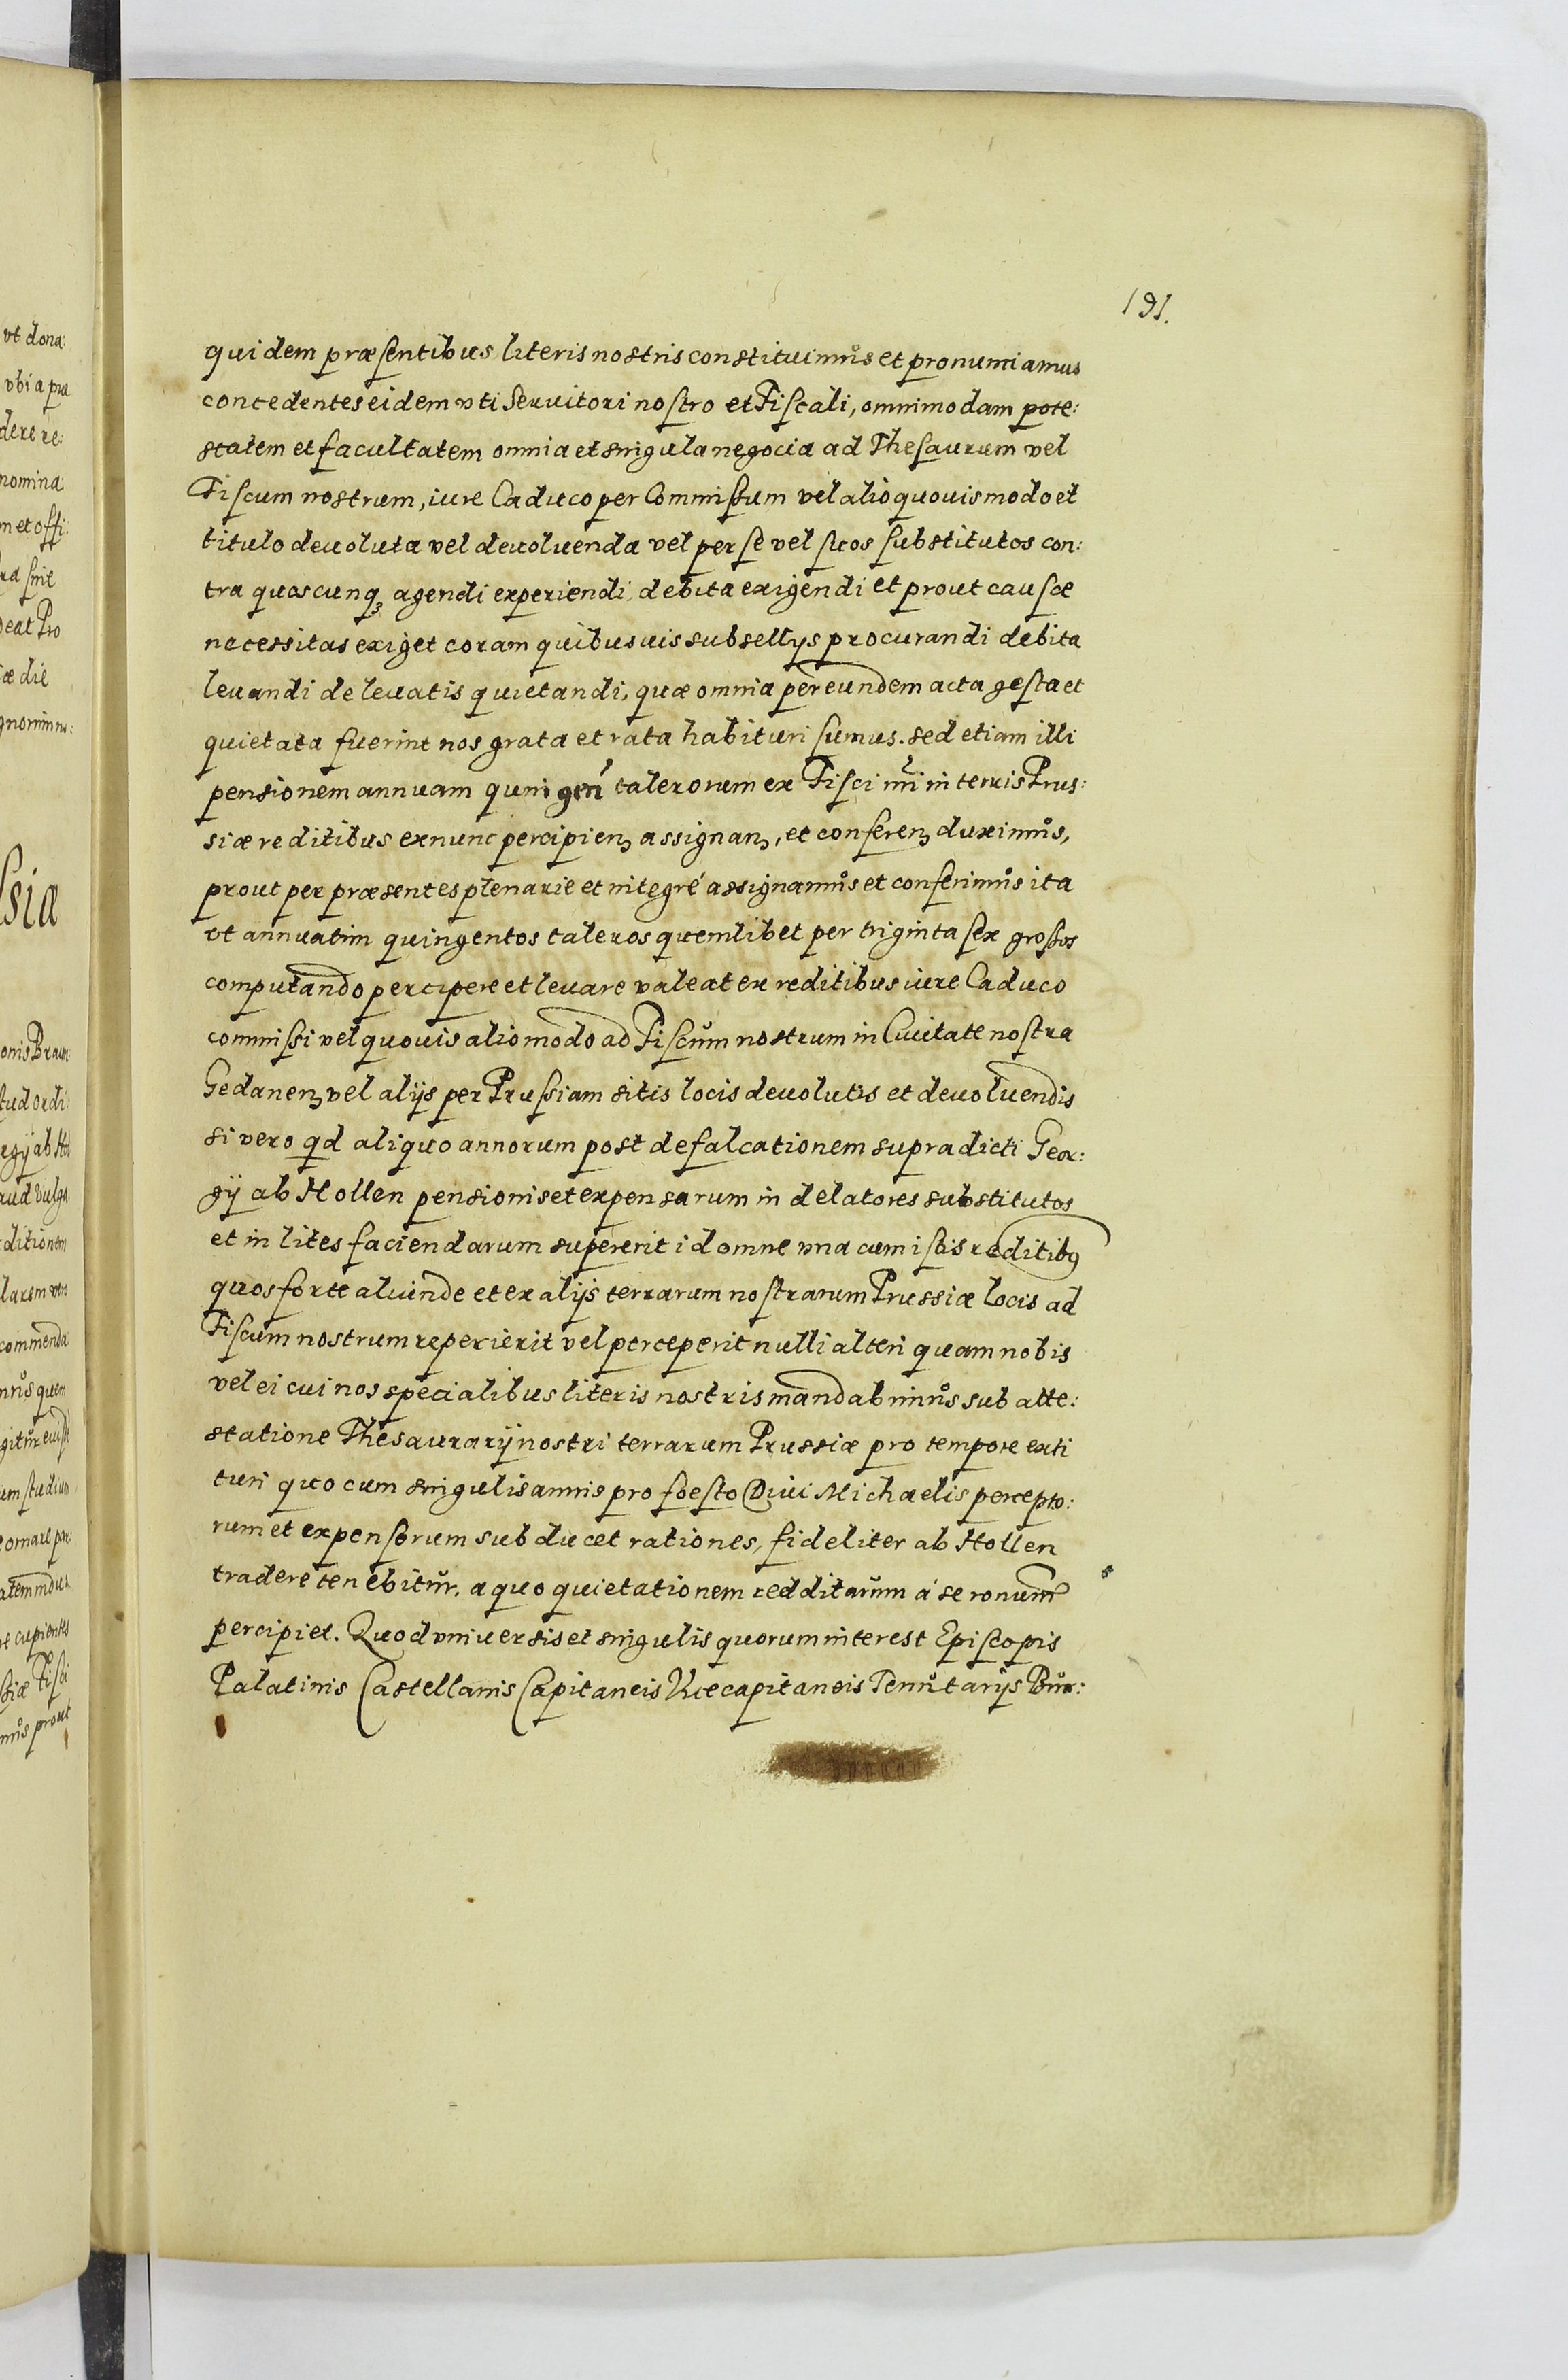 191.
quidem præsentibus literis nostris constituimus et pronunciamus
concedentes eidem vti Seruitori nostro et Fiscali, omnimodam pote:
statem et facultatem omnia et singula negocia ad Thesaurum vel
Fiscum nostrum, iure Caduco per Commissum vel alio quouismodo et
titulo deuoluta vel deuoluenda vel per se vel suos substitutos con:
tra quoscunqꝫ agendi experiendi, debita exigendi et prout causæ
necessitas exiget coram quibusuis subsellijs procurandi debita
leuandi de leuatis quietandi, quæ omnia per eundem acta gesta et
quietata fuerint nos grata et rata habituri sumus. sed etiam illi
pensionem annuam quingen talerorum ex Fisci nri in terris Prus:
siæ reditibus exnunc percipienꝫ assignanꝫ, et conferenꝫ duximus,
prout per præsentes plenarie et integré assignamus et conferimus ita
vt annuatim quingentos taleros quemlibet per triginta sex grossos
computando percipere et leuare valeat ex reditibus iure Caduco
commissi vel quouis alio modo ad Fiscum nostrum in Ciuitate nostra
Gedanenꝫ vel alijs per Prussiam sitis locis deuolutis et deuoluendis
si vero qd aliquo annorum post defalcationem supradicti Geor:
gij ab Hollen pensionis et expensarum in delatores substitutos
et in lites faciendarum supererit id omne vna cum istis reditibꝰ
quos forte aliunde et ex alijs terrarum nostrarum Prussiæ locis ad
Fiscum nostrum reperierit vel perceperit nulli alteri quam nobis
vel ei cui nos specialibus literis nostris mandabimus sub atte:
statione Thesaurarij nostri terrarum Prussiæ pro tempore exti
turi quocum singulis annis pro foesto Diui Michaelis percepto:
rum et expensorum subducet rationes, fideliter ab Hollen
tradere tenebitur. a quo quietationem redditarum á se
percipiet. Quod vniuersis et singulis quorum interest Episcopis
Palatinis Castellanis Capitaneis Vicecapitaneis Tenutarijs Bur: